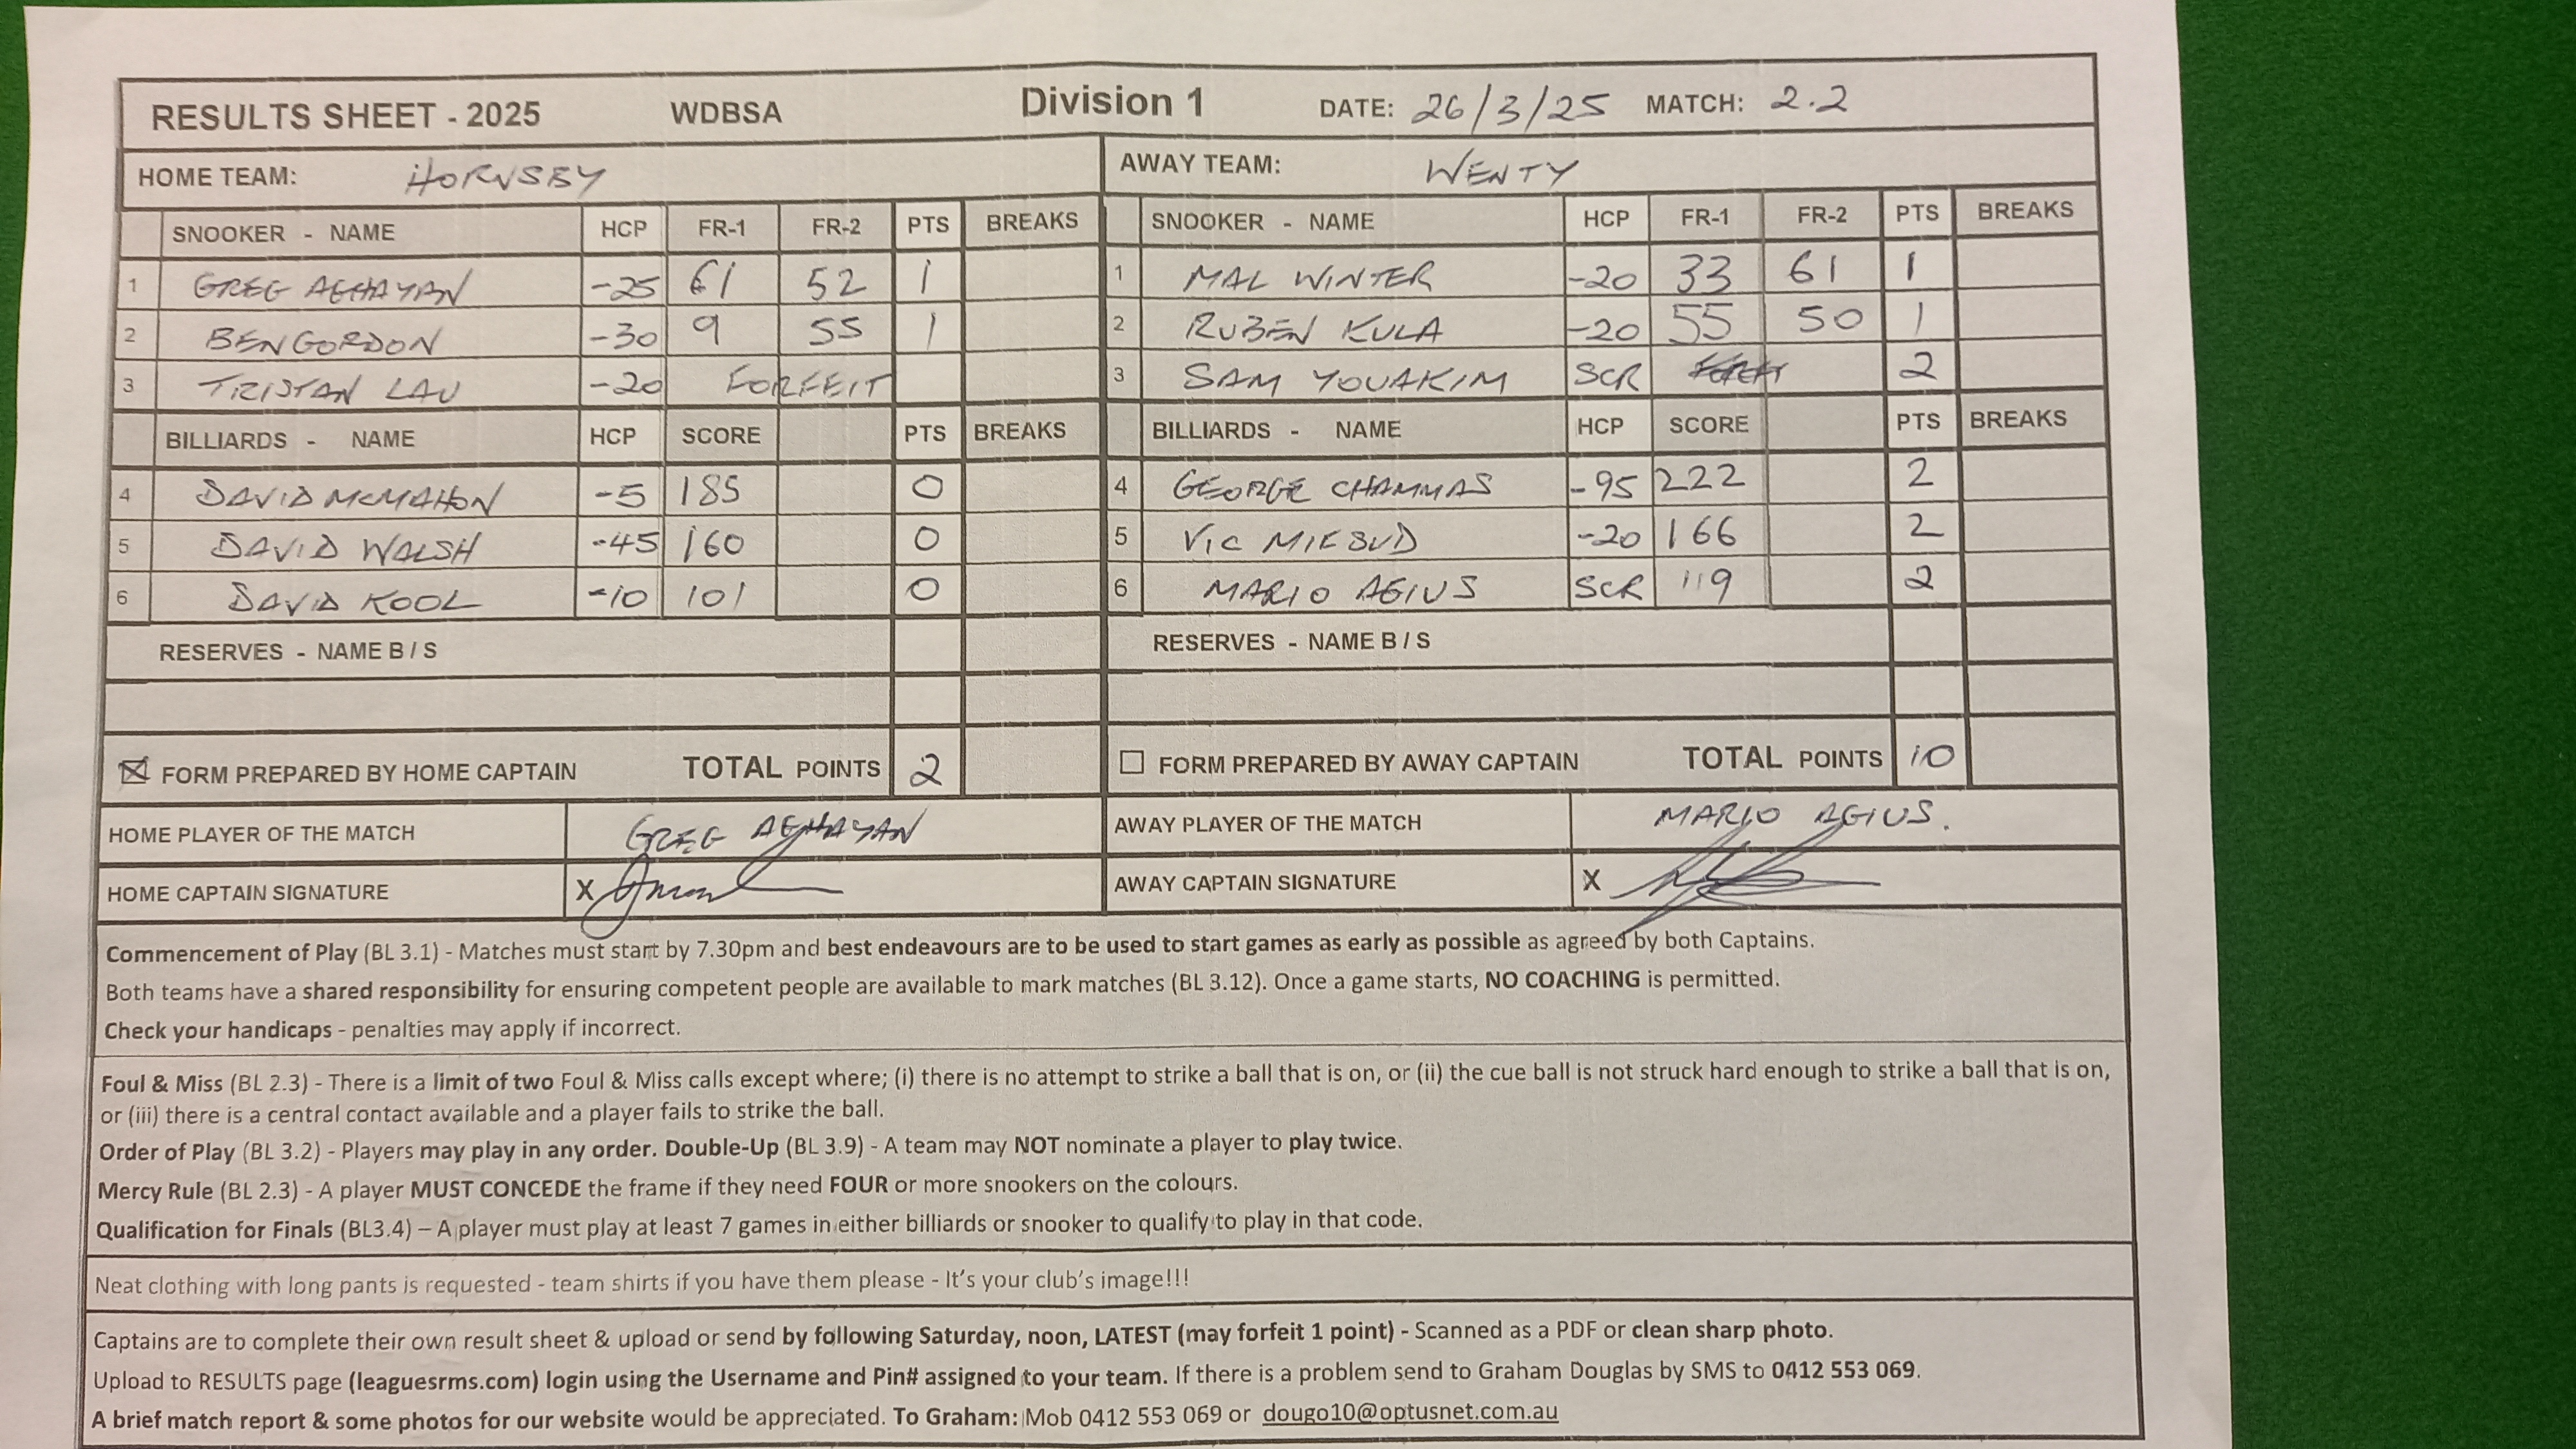 RESULTS SHEET - 2025 WDBSA Division 1 DATE: 26/3/25 MATCH: 2.2
HOME TEAM: HORNSBY AWAY TEAM: WENTY
SNOOKER - NAME HCP FR-1 FR-2 PTS BREAKS SNOOKER - NAME HCP FR-1 FR-2 PTS BREAKS
1 GREG AGHAYAN -25 61 52 1 1 MAL WINTER -20 33 61 1
2 BEN GORDON -30 9 55 1 2 RUBEN KULA -20 55 50 1
3 TRISTAN LAU -20 FORFEIT 3 SAM YOUAKIM SCR 2
BILLIARDS - NAME HCP SCORE PTS BREAKS BILLIARDS - NAME HCP SCORE PTS BREAKS
4 DAVID MCMAHON -5 185 0 4 GEORGE CHAMMAS -95 222 2
5 DAVID WALSH -45 160 0 5 VIC MIFSUD -20 166 2
6 DAVID KOOL -10 101 0 6 MARIO AGIUS SCR 119 2
RESERVES - NAME B / S RESERVES - NAME B / S
FORM PREPARED BY HOME CAPTAIN TOTAL POINTS 2 FORM PREPARED BY AWAY CAPTAIN TOTAL POINTS 10
HOME PLAYER OF THE MATCH GREG AGHAYAN AWAY PLAYER OF THE MATCH MARIO AGIUS.
HOME CAPTAIN SIGNATURE X AWAY CAPTAIN SIGNATURE X
Commencement of Play (BL 3.1) - Matches must start by 7.30pm and best endeavours are to be used to start games as early as possible as agreed by both Captains.
Both teams have a shared responsibility for ensuring competent people are available to mark matches (BL 3.12). Once a game starts, NO COACHING is permitted.
Check your handicaps - penalties may apply if incorrect.
Foul & Miss (BL 2.3) - There is a limit of two Foul & Miss calls except where; (i) there is no attempt to strike a ball that is on, or (ii) the cue ball is not struck hard enough to strike a ball that is on,
or (iii) there is a central contact available and a player fails to strike the ball.
Order of Play (BL 3.2) - Players may play in any order. Double-Up (BL 3.9) - A team may NOT nominate a player to play twice.
Mercy Rule (BL 2.3) - A player MUST CONCEDE the frame if they need FOUR or more snookers on the colours.
Qualification for Finals (BL3.4) – A player must play at least 7 games in either billiards or snooker to qualify to play in that code.
Neat clothing with long pants is requested - team shirts if you have them please - It's your club's image!!!
Captains are to complete their own result sheet & upload or send by following Saturday, noon, LATEST (may forfeit 1 point) - Scanned as a PDF or clean sharp photo.
Upload to RESULTS page (leaguesrms.com) login using the Username and Pin# assigned to your team. If there is a problem send to Graham Douglas by SMS to 0412 553 069.
A brief match report & some photos for our website would be appreciated. To Graham: Mob 0412 553 069 or dougo10@optusnet.com.au